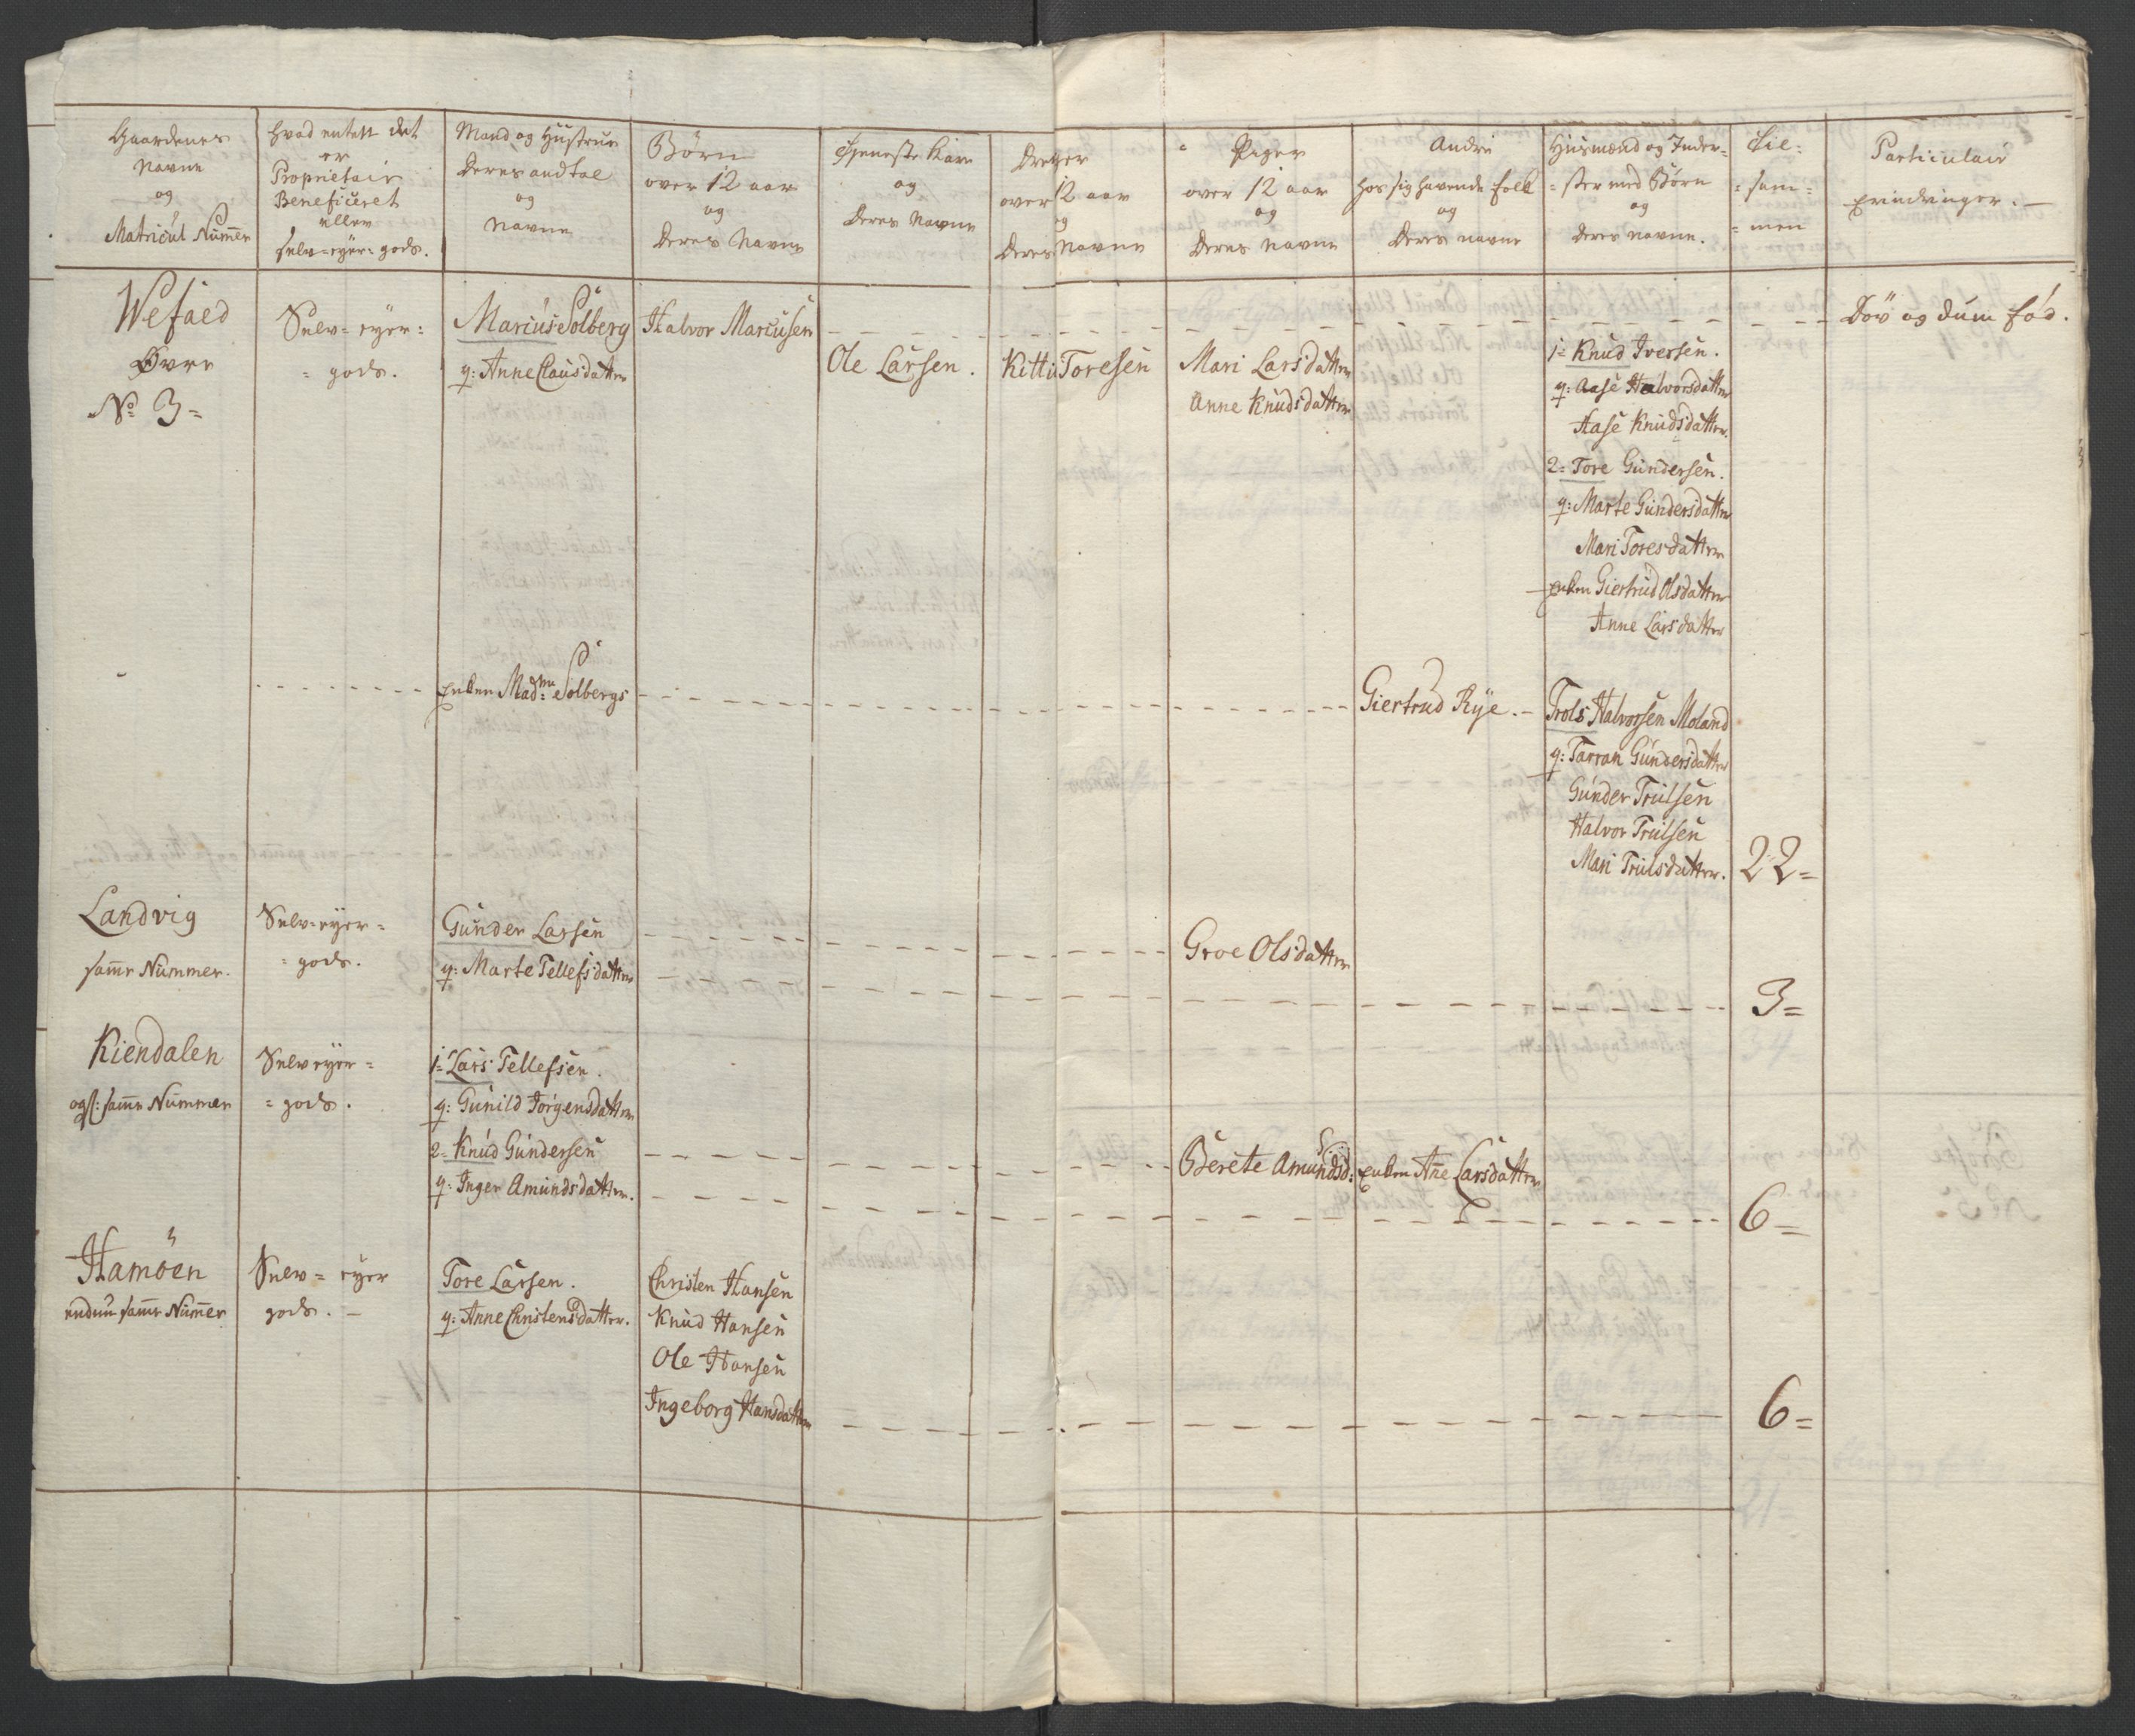 Gaardenes
Navne
og
Matricul Nummer
Hvad entten det
er
Proprietair
Beneficeret
eller
selv-eyer-gods.
Mand og Hustrue
Deres andtal
og
Navne
Børn
over 12 aar
og
Deres Navne
Tjeneste Karn
og
Deres Navne
Drenger
over 12 aar
og
Deres Navne
Piger
over 12 aar
og
Deres Navne
Andre
hos sig havende folk
og
Deres navne
Huusmænd og Inder-
-ster med Børn
og
Deres navne.
Til-
-sam-
-men
Particulair
Erindringer.
Wefaed
Øvre
No 3=
Selv-eyer-
-gods.
Marcus Solberg
q: Anne Clausdatter
Halvor Marcusen
Ole Larsen.
Kittil Toresen
Mari Larsdatter
Anne Knudsdatter
1= Knud Iversen.
q: Aase Halvorsdatter
Aase Knudsdatter.
2= Tore Gundersen.
q: Marte Gundersdatter
Mari Toresdatter
Enken Giertrud Olsdatter
Anne Larsdatter
Døv og dum fød.
Enken Madme Solbergs
Giertrud Rye.
Trols Halvorsen Moland
q: Tarran Gundersdatter
Gunder Trulsen
Halvor Trulsen
Mari Trulsdatter.
22=
Landvig
samme Nummer.
Selv-eyer-
-gods.
Gunder Larsen
q: Marte Tellefsdatter
Groe Olsdatter
3=
Kiendalen
ogs: samme Nummer
Selv eyer-
-gods.
1= Lars Tellefsen.
q: Gunild Jorgensdatter
2= Knud Gundersen
q: Inger Amundsdatter.
Berete Amundsd:
Enken Anne Larsdatter
6=
Hamoen
endnu samme Nummer
Selv-eyer
gods.
Tore Larsen.
q: Anne Christensdatter.
Christen Hansen
Knud Hansen
Ole Hansen
Ingeborg Hansdatter
6=